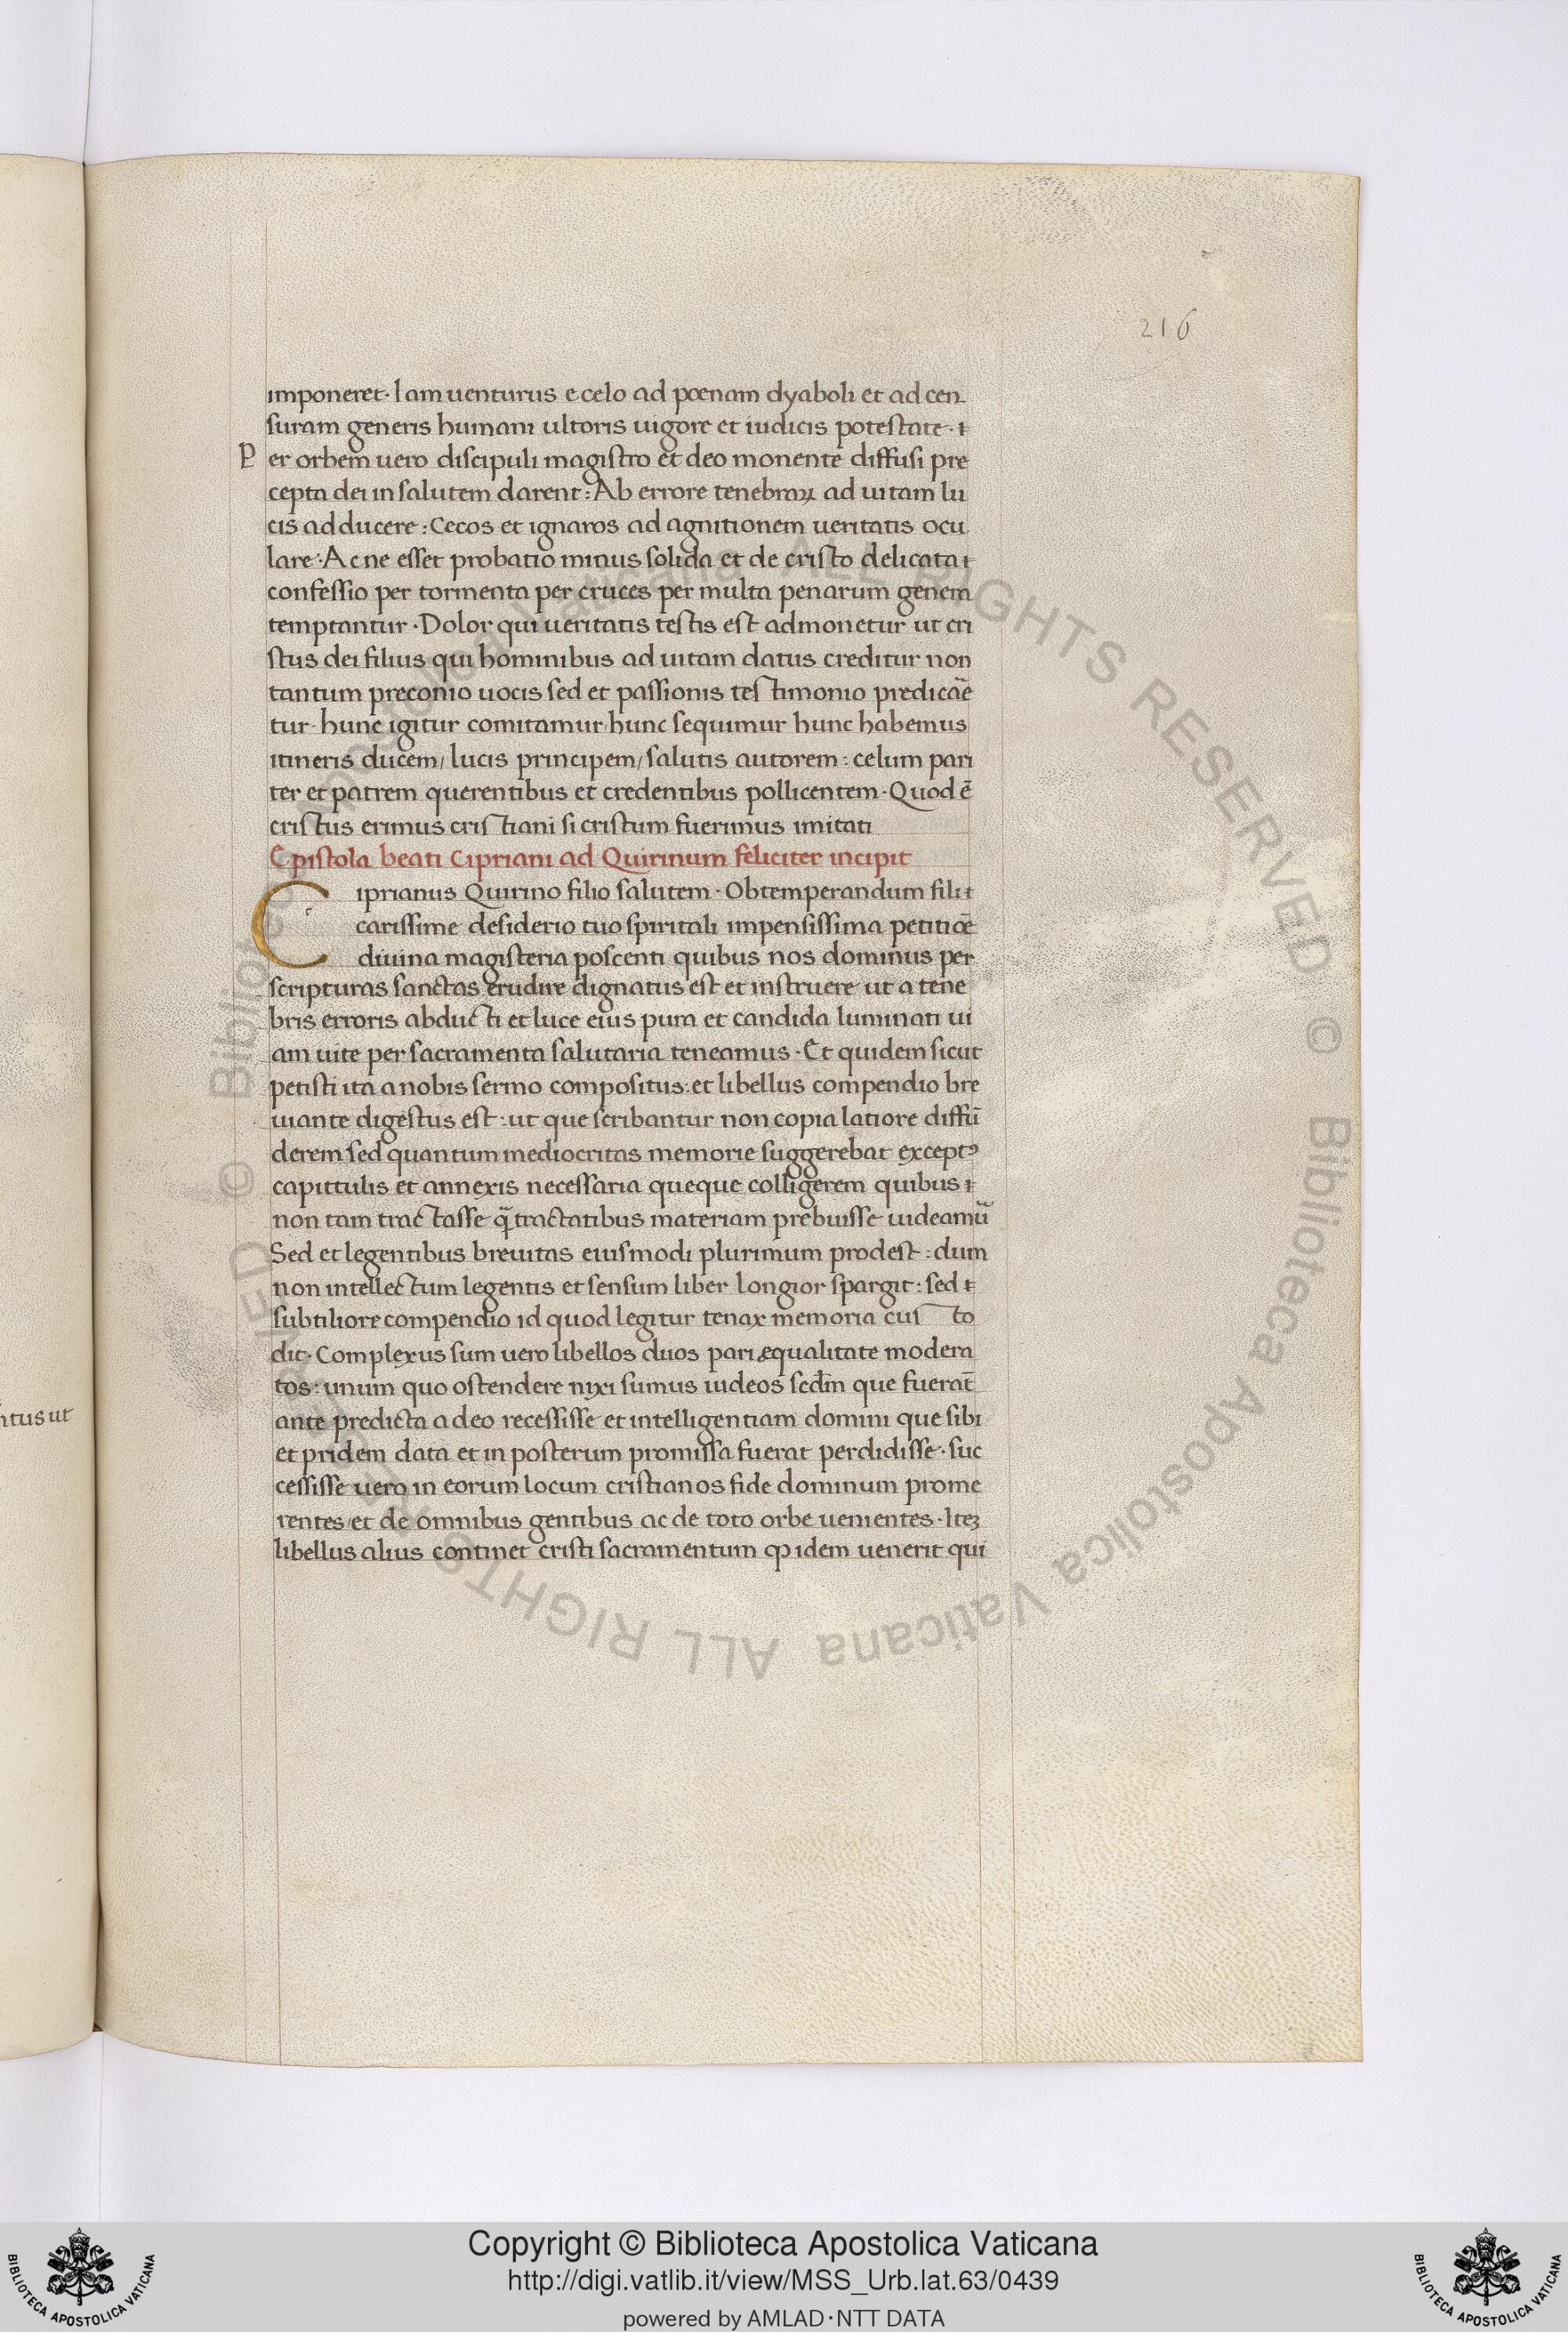 216
imponeret · Iam uenturus e celo ad pœnam dyaboli et ad cen
suram generis humani ultoris uigore et iudicis potestate ·
Per orbem uero discipuli magistro et deo monente diffusi pre
cepta dei in salutem darent : Ab errore tenebraꝝ ad uitam lu
cis adducere : Cecos et ignaros ad agnitionem ueritatis ocu
lare : Ac ne esset probatio minus solida et de cristo delicata
confessio per tormenta per cruces per multa penarum genera
temptantur · Dolor qui ueritatis testis est admonetur ut cri
stus dei filius qui hominibus ad uitam datus creditur non
tantum preconio uocis sed et passionis testimonio predicāe
tur · hunc igitur comitamur hunc sequimur hunc habemus
itineris ducem / lucis principem / salutis autorem : celum pari
ter et patrem querentibus et credentibus pollicentem · Quod ē
cristus erimus cristiani si cristum fuerimus imitati
Epistola beati Cipriani ad Quirinum feliciter incipit
Ciprianus Quirino filio salutem · Obtemperandum fili
carissime desiderio tuo spiritali impensissima petitiōe
diuina magisteria poscenti quibus nos dominus per
scripturas sanctas erudire dignatus est et instruere ut a tene
bris erroris abducti et luce eius pura et candida luminati ui
am uite per sacramenta salutaria teneamus · Et quidem sicut
petisti ita a nobis sermo compositus : et libellus compendio bre
uiante digestus est : ut que scribantur non copia latiore diffū
derem sed quantum mediocritas memorie suggerebat exceptꝰ
capittulis et annexis necessaria queque colligerem quibus
non tam tractasse qᷓ tractatibus materiam prebuisse uideamū
Sed et legentibus breuitas eiusmodi plurimum prodest : dum
non intellectum legentis et sensum liber longior spargit : sed
subtiliore compendio id quod legitur tenax memoria custo
dit · Complexus sum uero libellos duos pari æqualitate modera
tos : unum quo ostendere nixi sumus iudeos secdm̄ que fuerāt
ante predicta a deo recessisse et intelligentiam domini que sibi
et pridem data et in posterum promissa fuerat perdidisse · suc
cessisse uero in eorum locum cristianos fide dominum prome
rentes et de omnibus gentibus ac de toto orbe uenientes · Iteꝫ
libellus alius continet cristi sacramentum ꝙ idem uenerit qui
ntus ut
© Biblioteca Apostolica Vaticana ALL RIGHTS RESERVED © Biblioteca Apostolica Vaticana ALL RIGHTS RESERVED
Copyright © Biblioteca Apostolica Vaticana
http://digi.vatlib.it/view/MSS_Urb.lat.63/0439
powered by AMLAD · NTT DATA
BIBLIOTECA APOSTOLICA VATICANA
BIBLIOTECA APOSTOLICA VATICANA